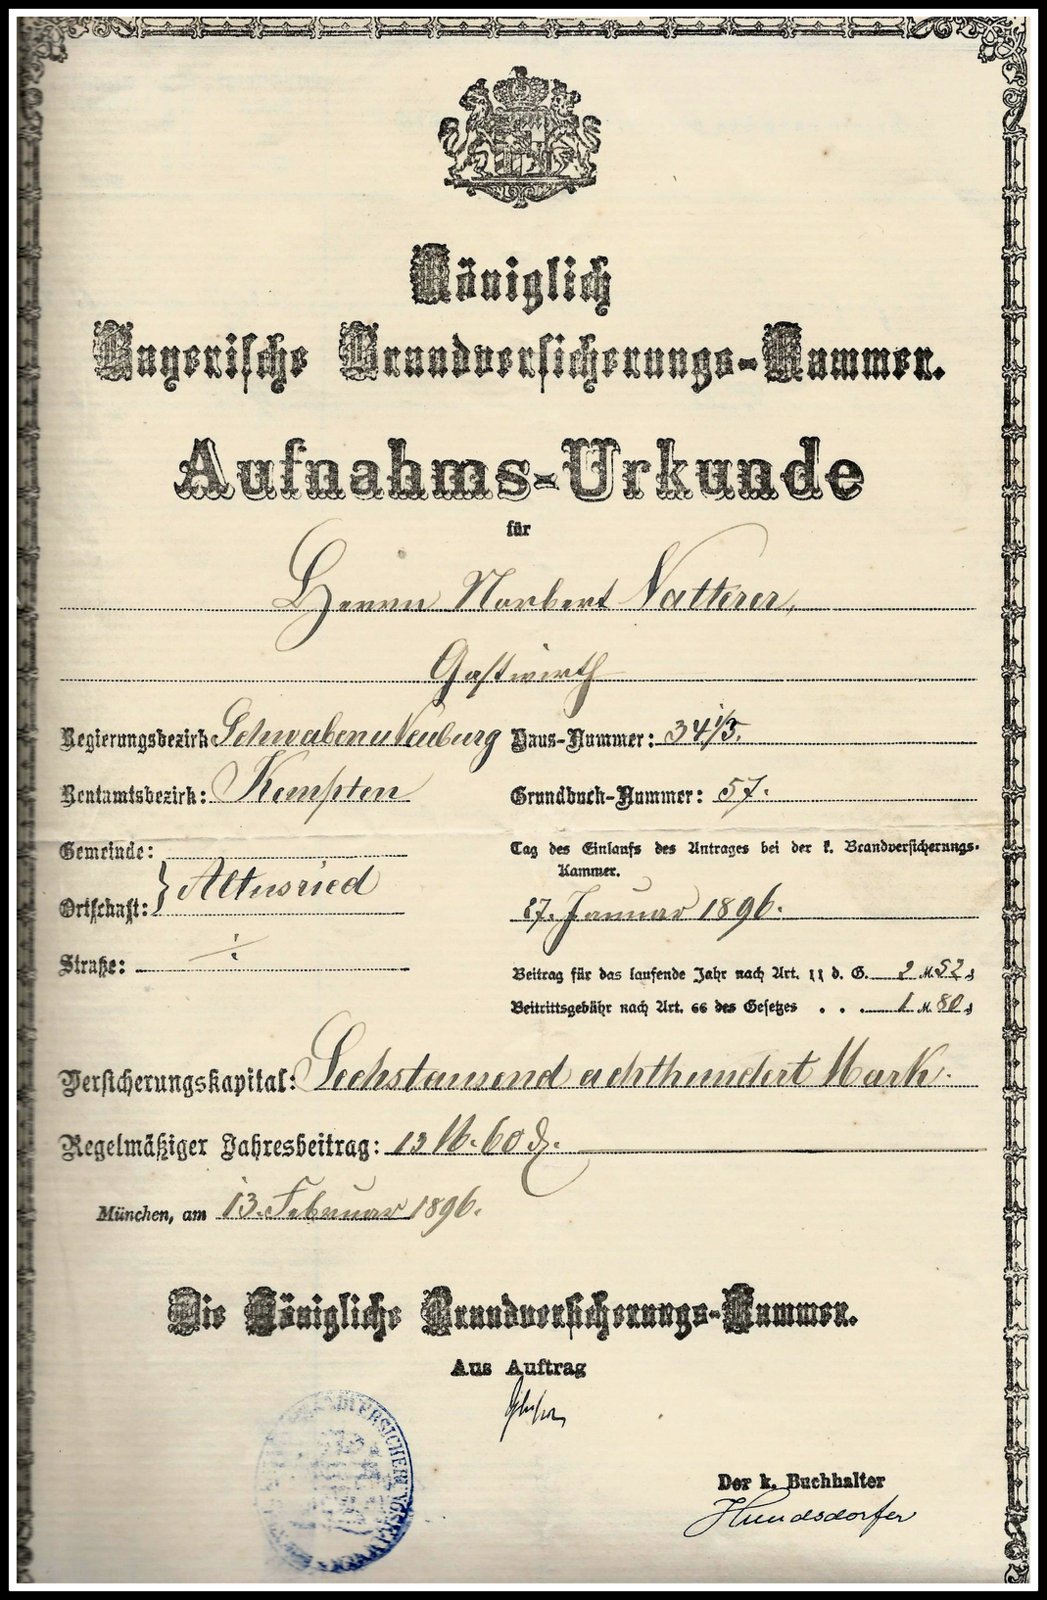 Königlich
Bayerische Brandversicherungs-Kammer.
Aufnahms-Urkunde
für
Herrn Norbert Natterer,
Gastwirth
Regierungsbezirk Schwaben u Neuburg Haus-Nummer: 34 1/3.
Rentamtsbezirk: Kempten Grundbuch-Nummer: 57.
Gemeinde: Tag des Einlaufs des Antrages bei der k. Brandversicherungs-
Kammer.
} Altusried
Ortschaft: 17. Januar 1896.
Straße: ·/· Beitrag für das laufende Jahr nach Art. 11 d. G. 2 M. 52 ₰
Beitrittsgebühr nach Art. 66 des Gesetzes . . . 1 M. 80 ₰
Versicherungskapital: Sechstausend achthundert Mark.
Regelmäßiger Jahresbeitrag: 13 M. 60 ₰.
München, am 13. Februar 1896.
Die Königliche Brandversicherungs-Kammer.
Aus Auftrag
Der k. Buchhalter
Hundsdorfer
BRANDVERSICHERUNGSKAMMER